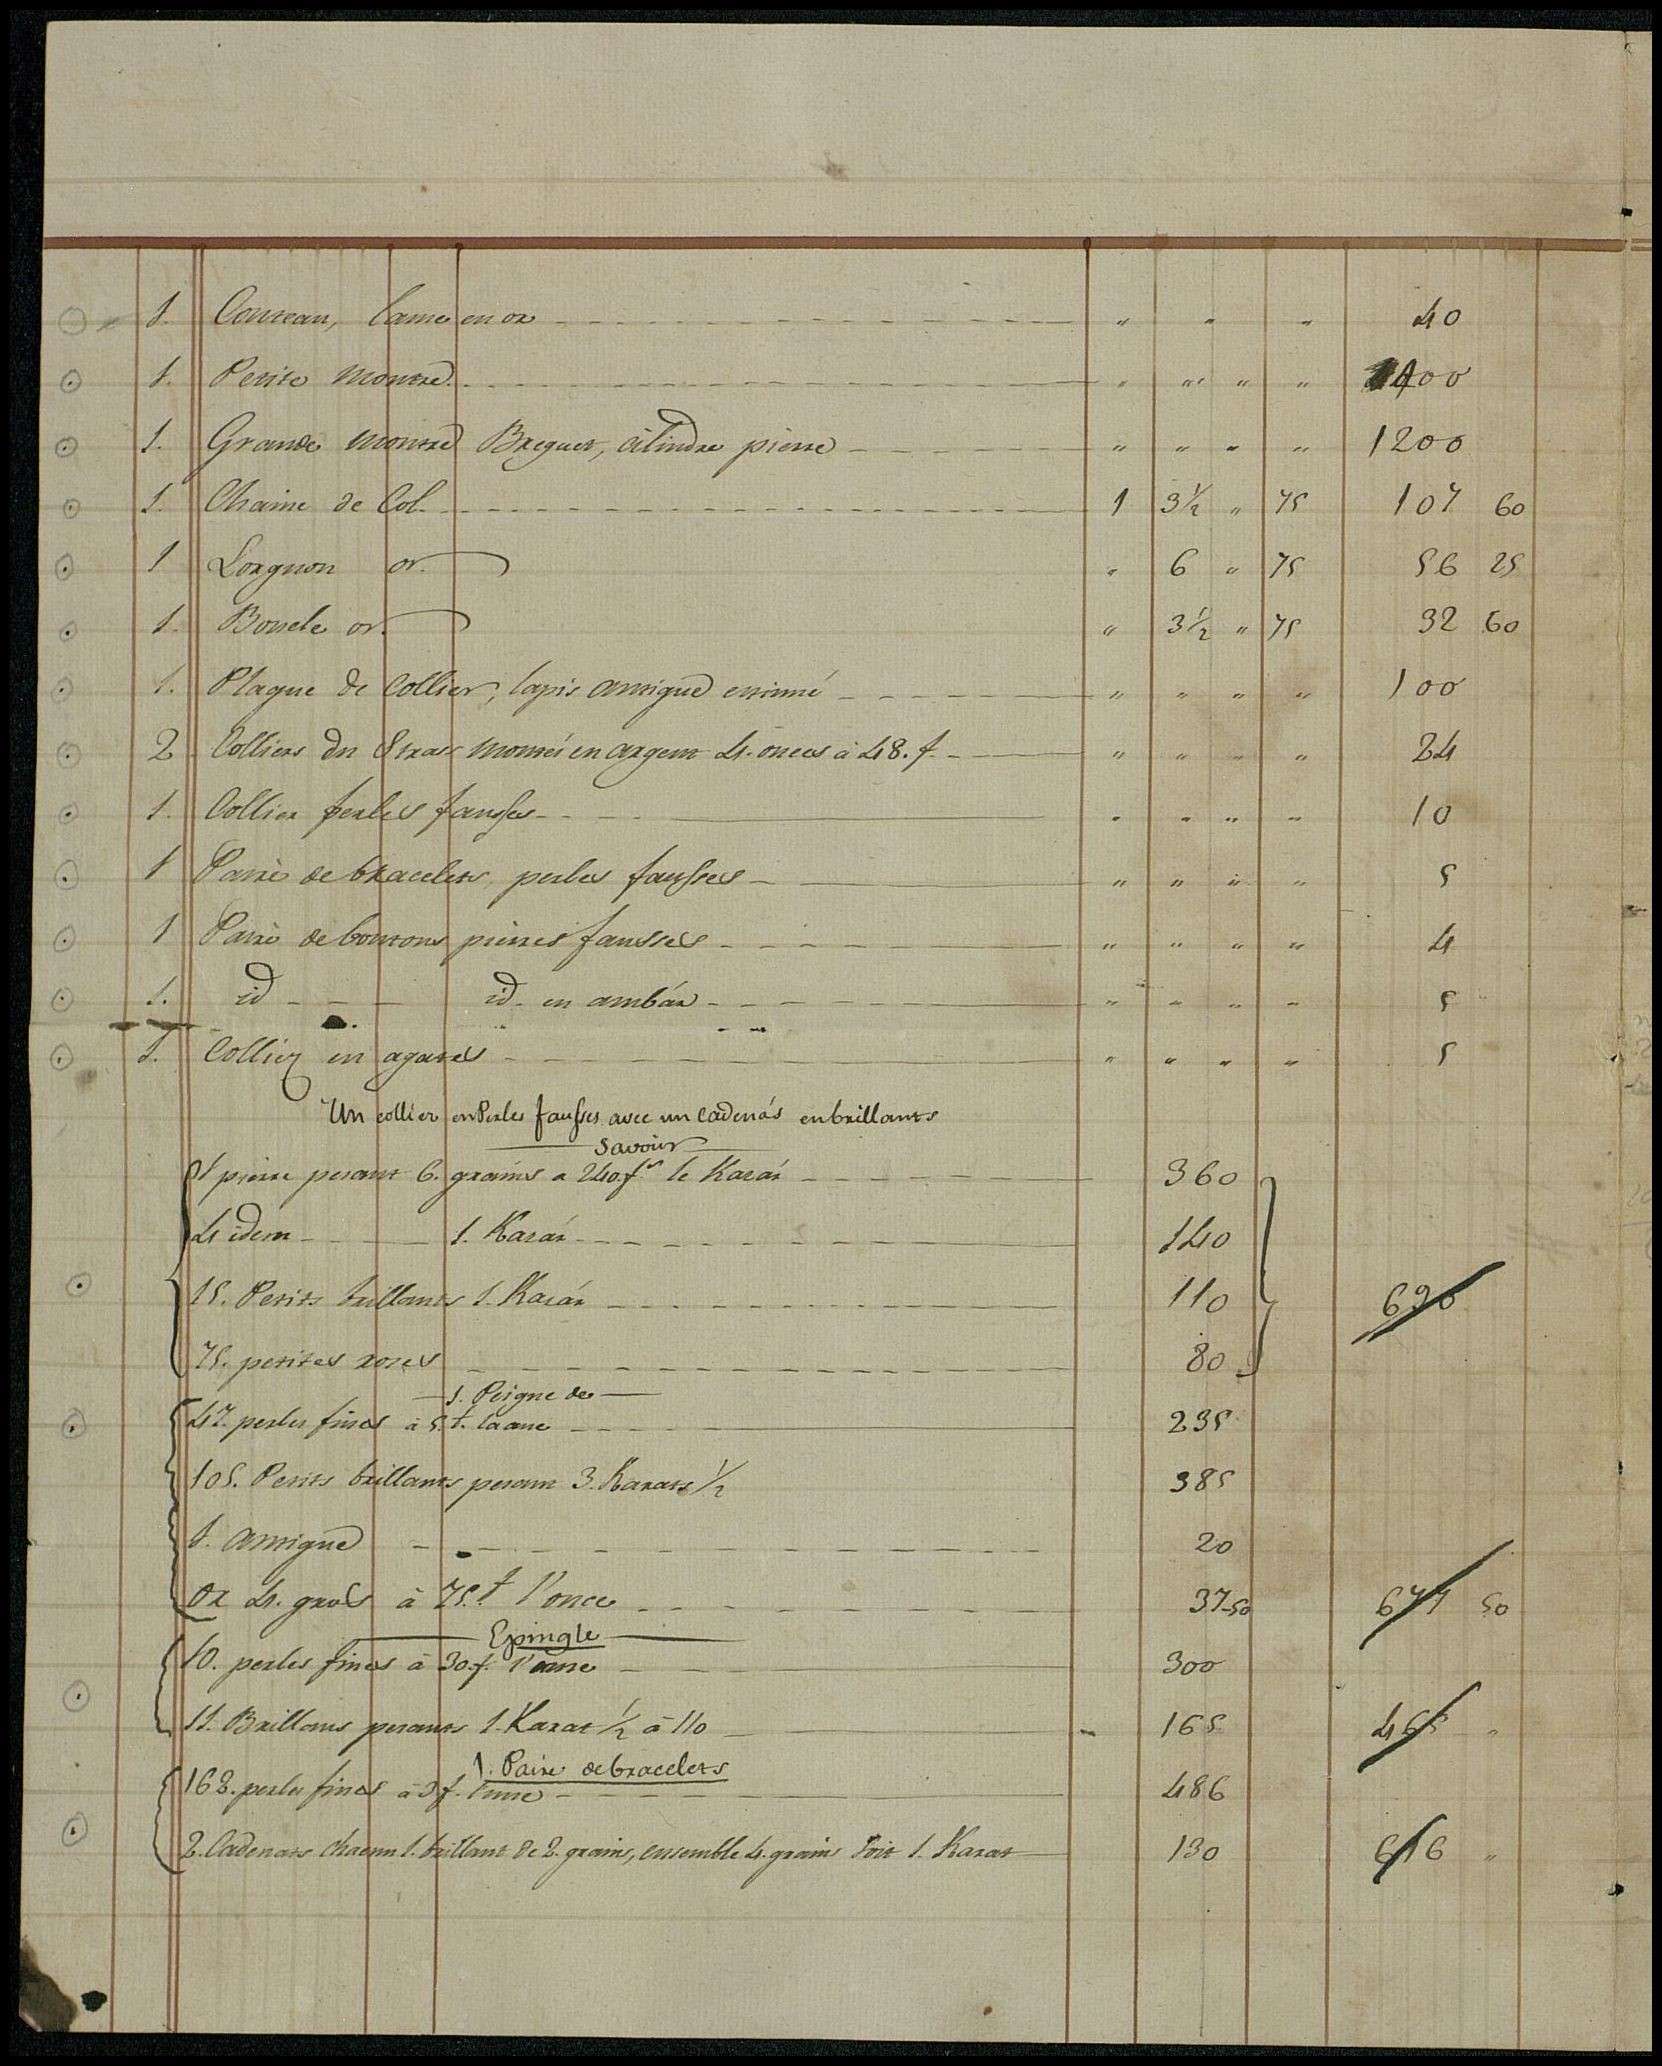 1. Couteau, lame en or - - - " " " 40
1. Petite montre - - - " " " " 00
1. Grande montre Breguet, cilindre pierre - - - " " " " 1200
1. Chaine de Col - - - 1 3½ " 75 107 60
1 Lorgnon or. " 6 " 75 56 25
1. Boucle or. " 3½ " 75 32 60
1. Plaque de Collier, lapis antique - - - " " " " 100
2 Colliers du Strass montés en argent 4. onces à 48. f - - - " " " " 24
1. Collier perles fausses - - - " " " " 10
1 Paire de bracelets perles fausses - - - " " " " 5
1 Paire de boutons pierres fausses - - - " " " " 4
1. id - - - id. en ambár - - - " " " " 5
1. Collier en agates - - - " " " " 5
Un collier en Perles fausses avec un Cadenás en brillants
Savoir
1 pierre pesant 6. grains a 240 f.s le Karát - - - 360
4 idem - - - 1. Karát - - - 140
15. Petits brillants 1. Karát - - - 110 690
75. petites roses - - - 80
1. Peigne de
47. perles fines à 5. f. - - - 235
105. Petits brillants pesant 3. Karats ½ 385
1. antique - - - 20
or 4. gros à 75. f l'once - - - 37-50 677 50
Epingle
10. perles fines à 30. f. l'une - - - 300
11. Brillans pesants 1. Karat ½ à 110 - - - 165 465 "
1. Paire de bracelets
168. perles fines à 3 f. l'une - - - 486
2. Cadenats chacun 1. brillant de 2. grains, ensemble 4. grains soit 1. Karat 130 616 "